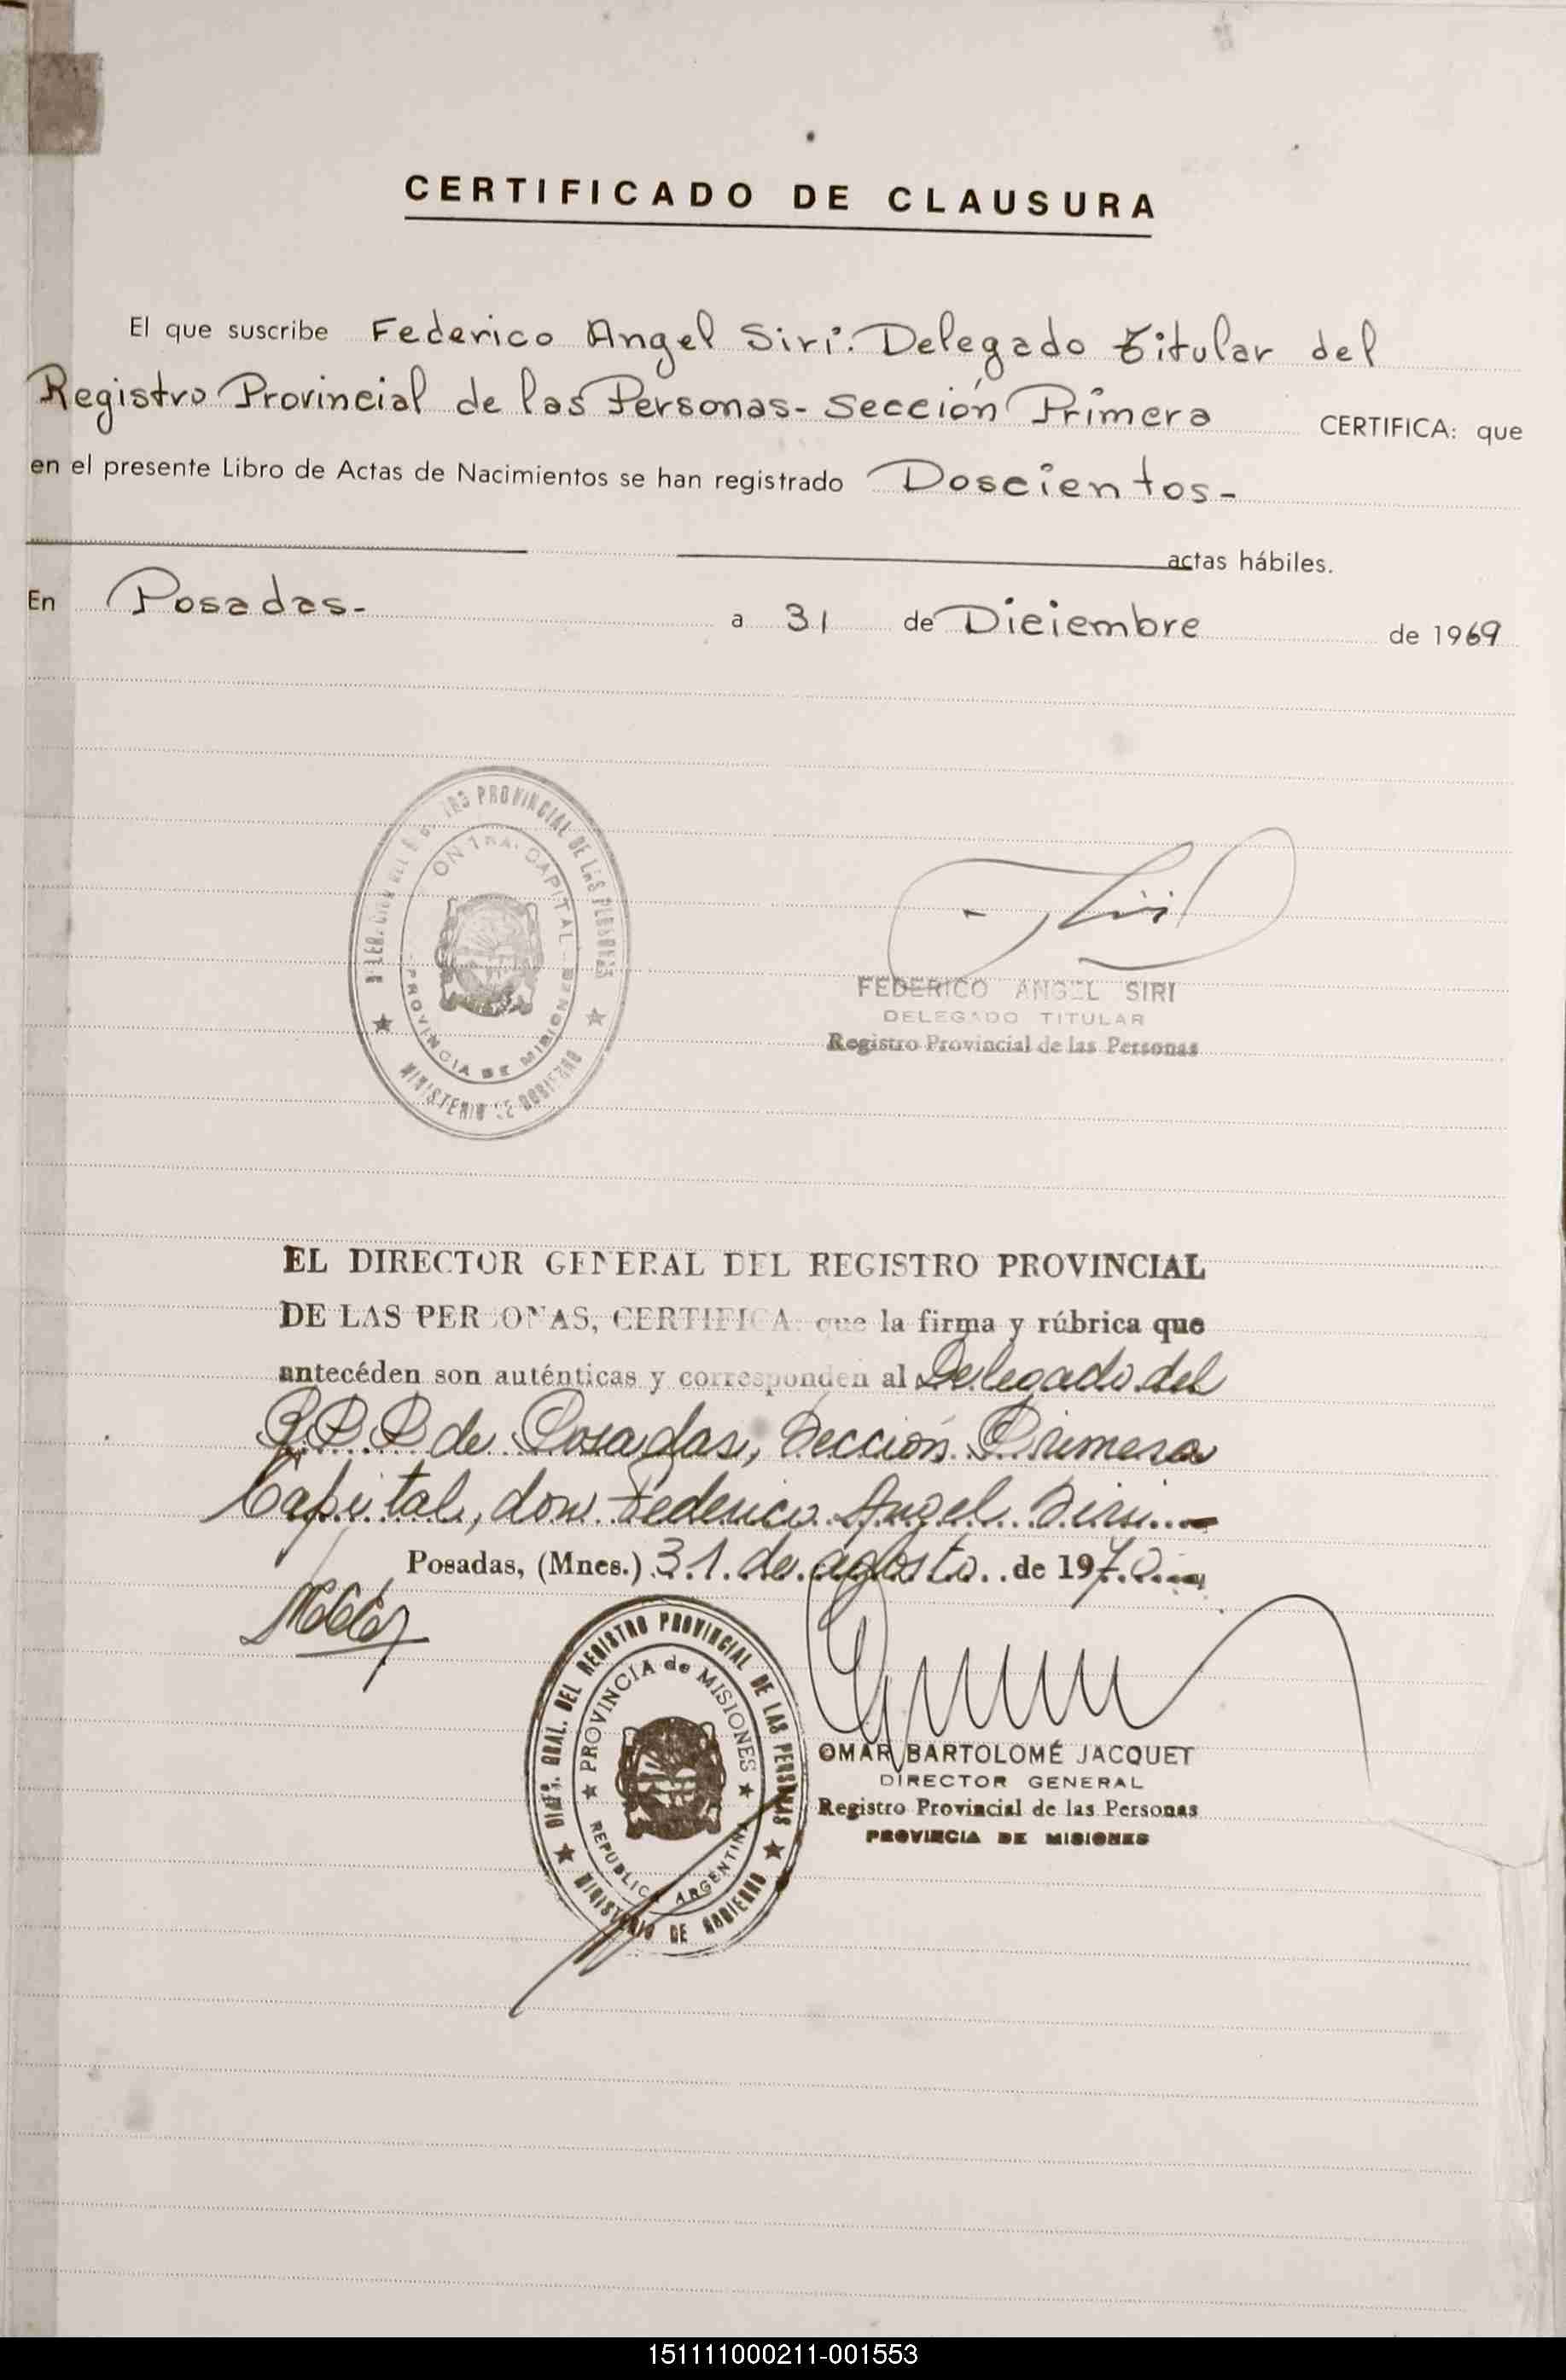 CERTIFICADO DE CLAUSURA
El que suscribe Federico Angel Siri. Delegado titular del
Registro Provincial de las Personas- Sección Primera CERTIFICA: que
en el presente Libro de Actas de Nacimientos se han registrado Doscientos-
actas hábiles.
En Posadas- a 31 de Diciembre de 1969
PROVINCIAL DE LAS PERSONAS
CAPITAL
PROVINCIA DE MISIONES
MINISTERIO DE GOBIERNO
FEDERICO ANGEL SIRI
DELEGADO TITULAR
Registro Provincial de las Personas
EL DIRECTOR GENERAL DEL REGISTRO PROVINCIAL
DE LAS PERSONAS, CERTIFICA: que la firma y rúbrica que
antecéden son auténticas y corresponden al Delegado del
R.P.P. de Posadas, Sección Primera
Capital, don Federico Angel Siri.-
Posadas, (Mnes.) 31 de agosto de 1970.-
DIREC. GRAL. DEL REGISTRO PROVINCIAL DE LAS PERSONAS
PROVINCIA de MISIONES
REPUBLICA ARGENTINA
MINISTERIO DE GOBIERNO
OMAR BARTOLOMÉ JACQUET
DIRECTOR GENERAL
Registro Provincial de las Personas
PROVINCIA DE MISIONES
151111000211-001553